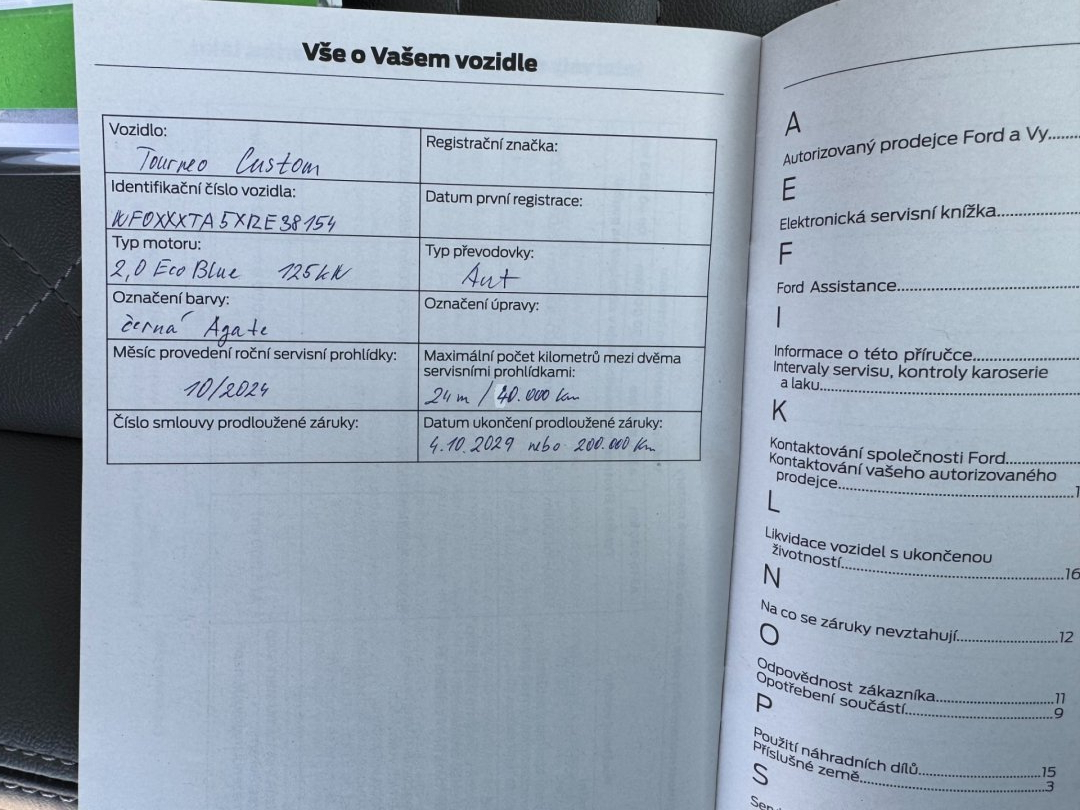 Vše o Vašem vozidle
Vozidlo:
Tourneo Custom
Registrační značka:
Identifikační číslo vozidla:
WF0XXXTA5XRE38154
Datum první registrace:
Typ motoru:
2,0 Eco Blue 125kW
Typ převodovky:
Aut
Označení barvy:
černá Agate
Označení úpravy:
Měsíc provedení roční servisní prohlídky:
10/2024
Maximální počet kilometrů mezi dvěma
servisními prohlídkami:
24m / 40.000 km
Číslo smlouvy prodloužené záruky:
Datum ukončení prodloužené záruky:
4.10.2029 nebo 200.000 km
A
Autorizovaný prodejce Ford a Vy
E
Elektronická servisní knížka
F
Ford Assistance
I
Informace o této příručce
Intervaly servisu, kontroly karoserie
a laku
K
Kontaktování společnosti Ford
Kontaktování vašeho autorizovaného
prodejce
L
Likvidace vozidel s ukončenou
životností 16
N
Na co se záruky nevztahují 12
O
Odpovědnost zákazníka 11
Opotřebení součástí 9
P
Použití náhradních dílů 15
Příslušné země 3
S